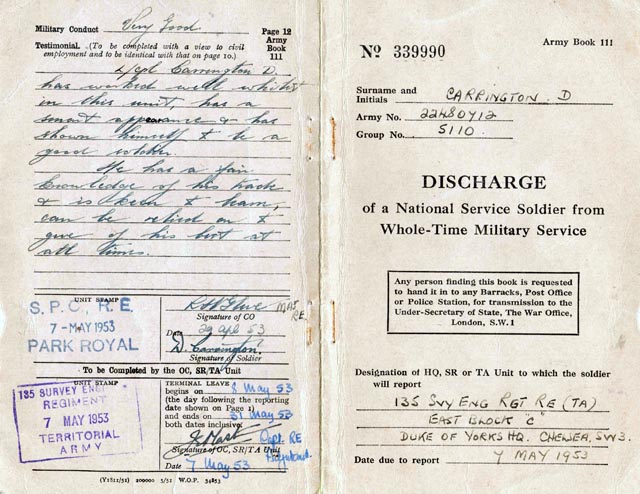 Military Conduct Very Good.
Page 12
Army
Book
111
Testimonial. (To be completed with a view to civil
employment and to be identical with that on page 10.)
L/cpl Carrington D.
has worked well whilst
in this unit, has a
smart appearance & has
shown himself to be a
good worker.
He has a fair
knowledge of his trade
& is keen to learn,
can be relied on to
give of his best at
all times.
UNIT STAMP
S.P.C., R.E.
7-MAY 1953
PARK ROYAL
MAJ
RE
Signature of CO
Date 29 Apl 53
D. Carrington.
Signature of Soldier
To be Completed by the OC, SR/TA Unit
UNIT STAMP
135 SURVEY ENG
REGIMENT
7 MAY 1953
TERRITORIAL
ARMY
TERMINAL LEAVE
begins on 8 May 53
(the day following the reporting
date shown on Page 1)
and ends on 31 May 53
both dates inclusive.
Capt. RE
Signature of OC, SR/TA Unit
Date 7 May 53
(Y1611/51) 200000 5/51 W.O.P. 34853
Army Book 111
No 339990
Surname and
Initials CARRINGTON. D
Army No. 22480412
Group No. 5110.
DISCHARGE
of a National Service Soldier from
Whole-Time Military Service
Any person finding this book is requested
to hand it in to any Barracks, Post Office
or Police Station, for transmission to the
Under-Secretary of State, The War Office,
London, S.W.1
Designation of HQ, SR or TA Unit to which the soldier
will report
135 SVY ENG RGT RE (TA)
EAST BLOCK "C"
DUKE OF YORKS HQ. CHELSEA, SW3.
Date due to report 7 MAY 1953